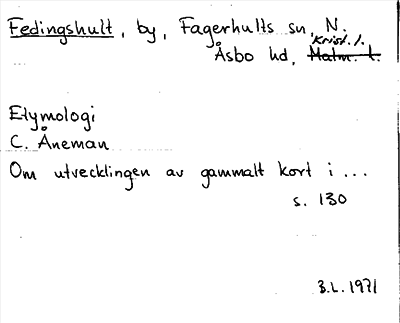 Fedingshult, by, Fagerhults sn, N.
Krist. l.
Åsbo hd, Malm. l.
Etymologi
C. Åneman
Om utvecklingen av gammalt kort i ...
s. 130
B.L. 1971